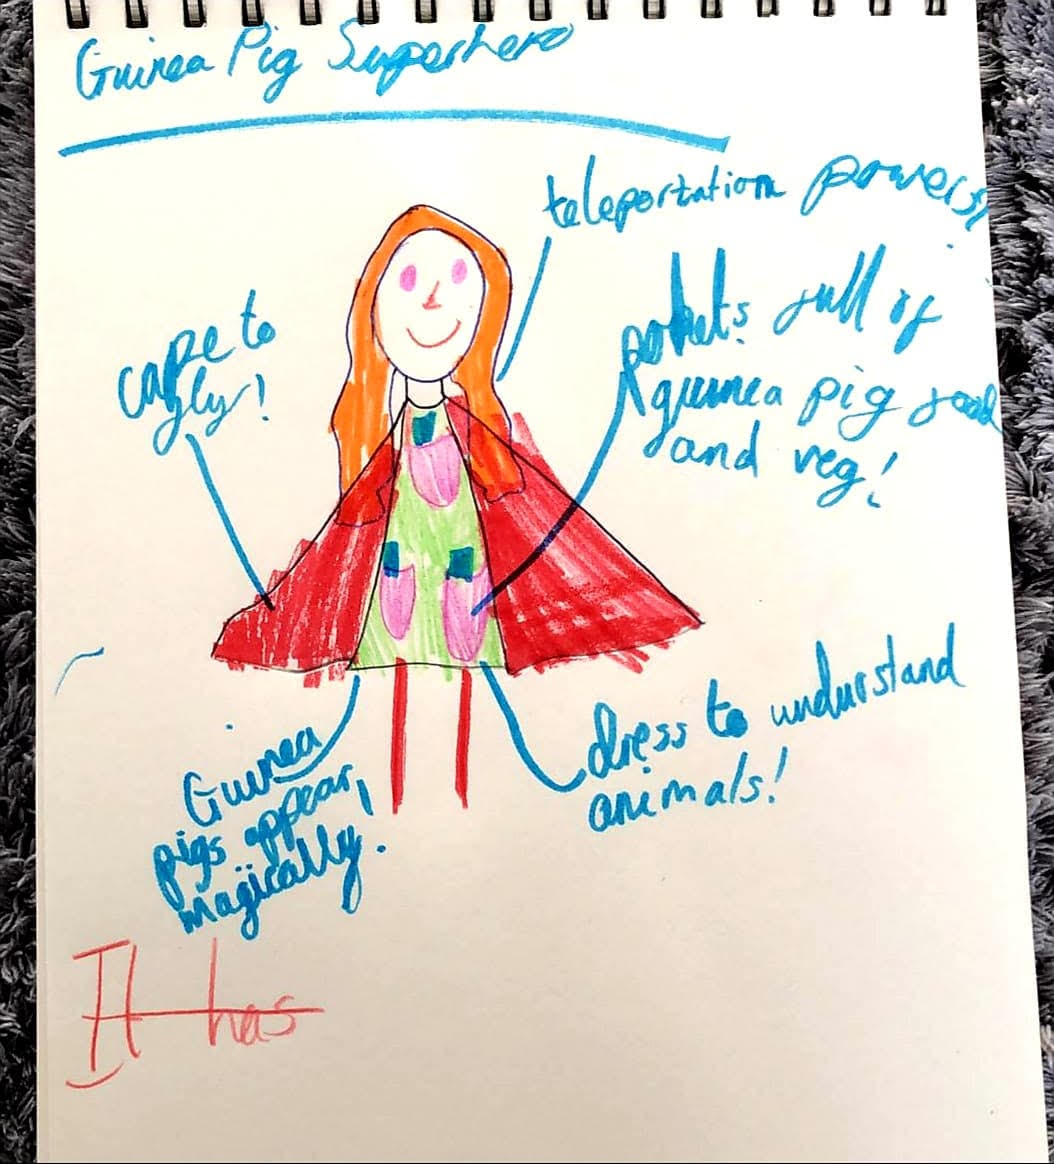 Guinea Pig Superhero
teleportation powers!
cape to
fly!
pockets full of
guinea pig food
and veg!
dress to understand
animals!
Guinea
pigs appear
magically!
It has